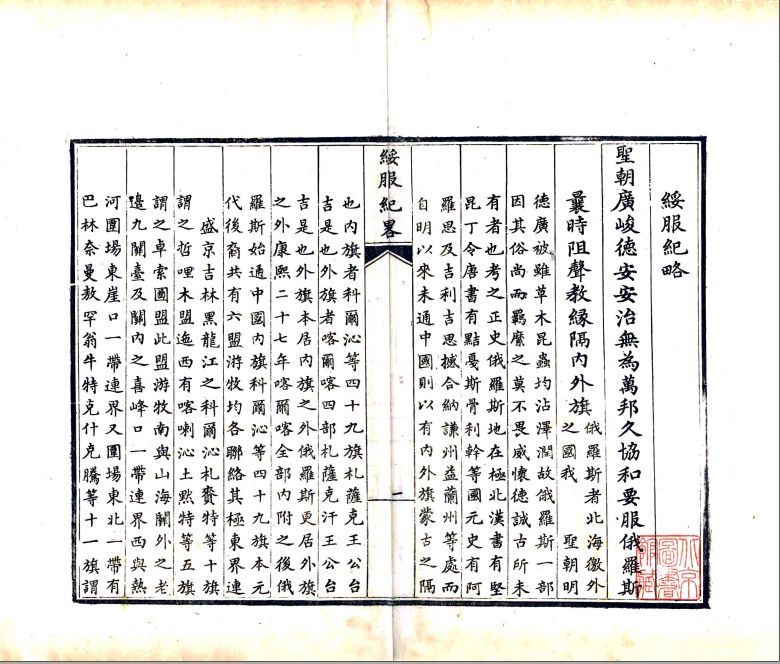 綏服紀略
聖朝廣峻德安安治無為萬邦久協和要服俄羅斯
曩時阻聲教緣隔內外旗
俄羅斯者北海徼外
之國我　聖朝明
德廣被雖草木昆蟲均沾澤潤故俄羅斯一部
因其俗尚而羈縻之莫不畏威懷德誠古所未
有者也考之正史俄羅斯地在極北漢書有堅
昆丁令唐書有點戛斯骨利幹等國元史有阿
羅思及吉利吉思撼合納謙州益蘭州等處而
自明以來未通中國則以有內外旗蒙古之隔
綏服紀畧
一
也內旗者科爾沁等四十九旗札薩克王公台
吉是也外旗者喀爾喀四部札薩克汗王公台
吉是也外旗本居內旗之外俄羅斯更居外旗
之外康熙二十七年喀爾喀全部內附之後俄
羅斯始通中國內旗科爾沁等四十九旗本元
代後裔共有六盟游牧均各聯絡其極東界連
盛京吉林黑龍江之科爾沁札賚特等十旗
謂之哲哩木盟迤西有喀喇沁土默特等五旗
謂之卓索圖盟此二盟游牧南與山海關外之老
邊九關臺及關內之喜峰口一帶連界西與熱
河圍場東崖口一帶連界又圍場東北一帶有
巴林奈曼敖罕翁牛特克什克騰等十一旗謂